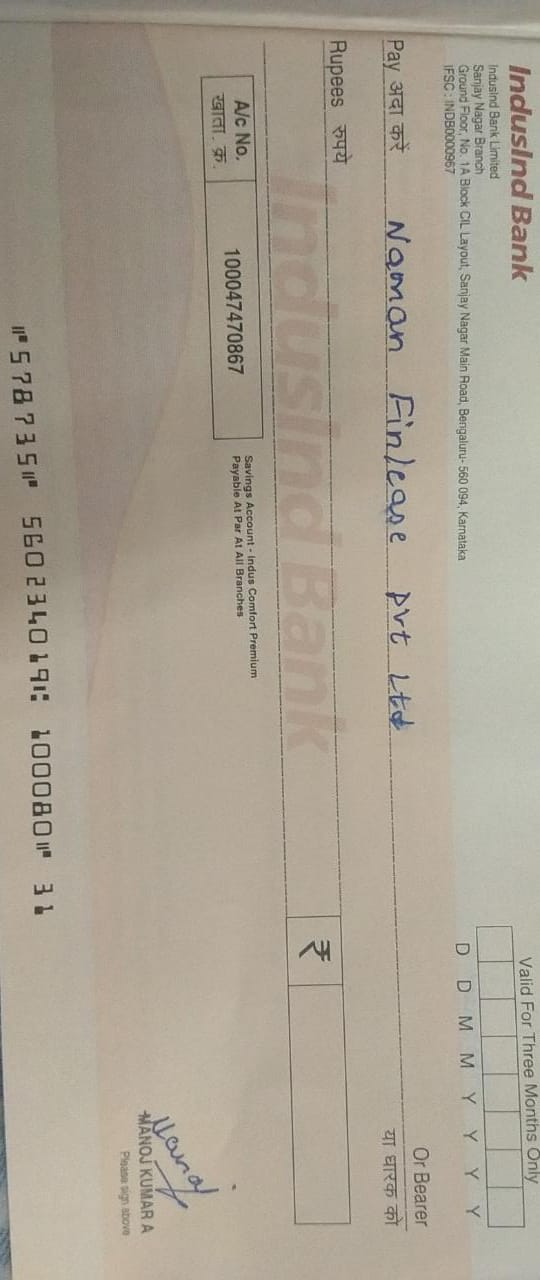 IndusInd Bank
IndusInd Bank Limited
Sanjay Nagar Branch
Ground Floor, No. 1A Block CIL Layout, Sanjay Nagar Main Road, Bengaluru- 560 094, Karnataka
IFSC : INDB0000967
Valid For Three Months Only
D D M M Y Y Y Y
Pay अदा करें Naman Finlease pvt Ltd
Or Bearer
या धारक को
Rupees रुपये
₹
IndusInd Bank
A/c No.
खाता. क्र.
100047470867
Savings Account - Indus Comfort Premium
Payable At Par At All Branches
Manoj
MANOJ KUMAR A
Please sign above
⑈578735⑈ 560234019⑆ 100080⑈ 31